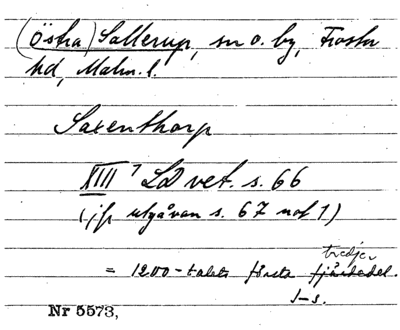 (Östra) Sallerup, sn o. by, Frosta
hd, Malm. l.
Saxenthorp
XIII 7 LD vet. s. 66
(jfr utgåvan s. 67 not 1)
tredje
= 1200-talets första fjärdedel.
J-s.
Nr 5573,